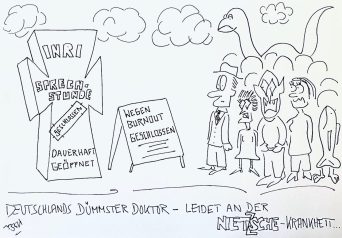 INRI
SPRECH-
STUNDE
GESCHLOSSEN
DAUERHAFT
GEÖFFNET
WEGEN
BURNOUT
GESCHLOSSEN
DEUTSCHLANDS DÜMMSTER DOKTOR - LEIDET AN DER
NIETZSCHE-KRANKHEIT...